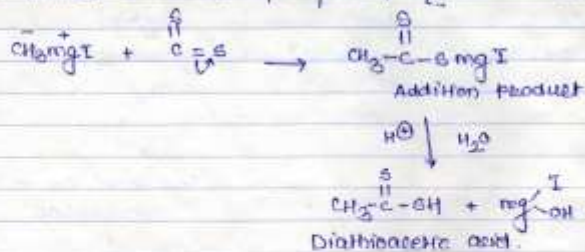 S
CH₃⁻ Mg⁺ I + C = S ⟶ CH₃–C–S mg I
S
Addition product
H⊕ H₂O
S
CH₃–C–SH + mg I OH
Diathioacetic acid.